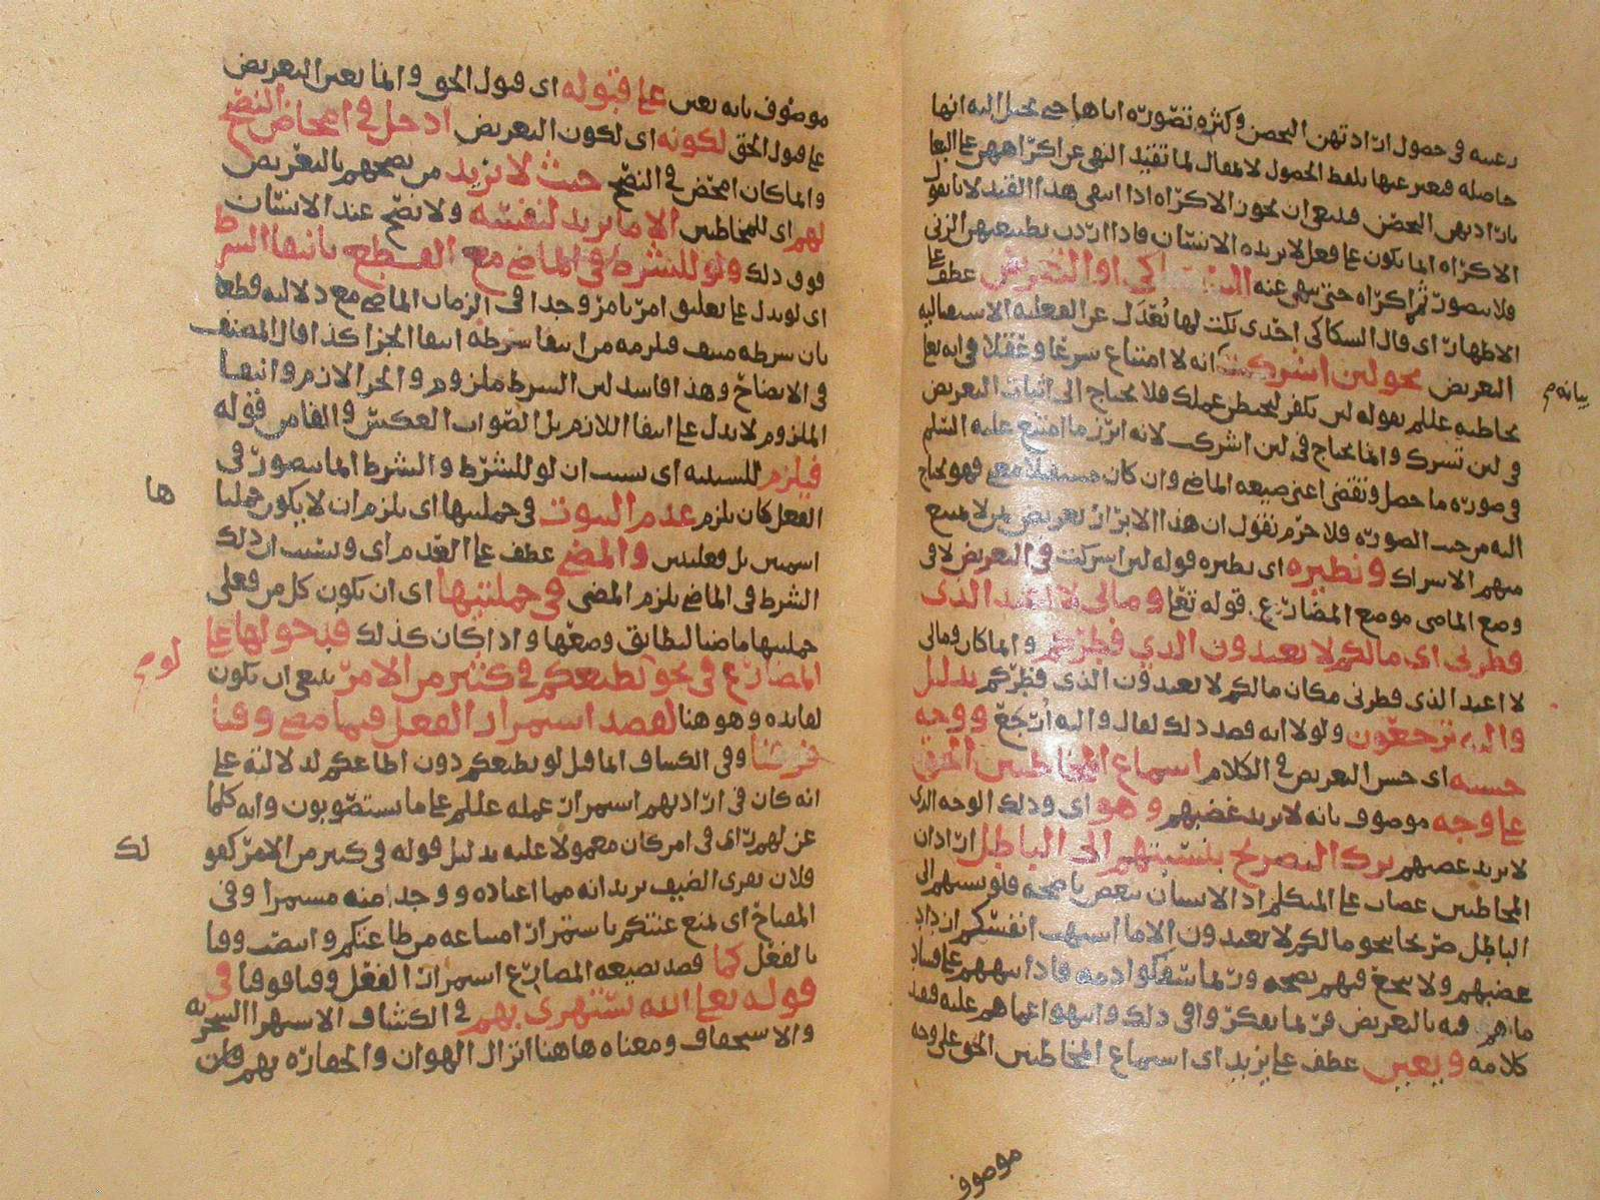 رغبته في حصول ارادتهن التحصن وكثرة تصوره اياها حتى يخيل اليه انها
حاصلة فعبر عنها بلفظ الحصول لا يقال لما تقيد النهي عن اكراههن على البغا
بارادتهن التحصن فينبغي ان يجوز الاكراه اذا انتفى هذا القيد لانا نقول
الاكراه انما يكون على فعل لا يريده الانسان فاذا اردن بطبعهن الزنى
فلا يتصور ثم اكراه حتى ينهى عنه السكاكي او التعريض عطف على
الاظهار اي قال السكاكي احدى نكت لها يعدل عن الفعلية الاستقبالية
التعريض نحو لئن اشركت انه لا امتناع شرعا وعقلا في انه تعا
يخاطبه عللم بقوله لئن تكفر ليحبطن عملك فلا يحتاج الى اثبات التعريض
في لئن تشرك وانما يحتاج في لئن اشركت لانه ابرز ما امتنع عليه السلم
في صورة ما حصل وتقضى اعني صيغة الماضي وان كان مستقبلا معنى فهو يحتاج
اليه من حيث الصورة فلا جرم نقول ان هذا الابراز تعريض لمن لا يمتنع
منهم الاشراك ونظيره اي نظيره قوله لئن اشركت في التعريض لا في
وضع الماضي موضع المضارع قوله تعا ومالي لا اعبد الذي
فطرني اي مالكم لا تعبدون الذي فطركم وانما كان ومالي
لا اعبد الذي فطرني مكان مالكم لا تعبدون الذي فطركم بدليل
واليه ترجعون ولولا انه قصد ذلك لقال واليه ارجع ووجه
حسنه اي حسن التعريض في الكلام اسماع المخاطبين الحق
على وجه موصوف بانه لا يريد غضبهم وهو اي وذلك الوجه الذي
لا يريد غضبهم ترك التصريح بنسبتهم الى الباطل اراد ان
المخاطبين غضاب على المتكلم اذ الانسان يبغض ناصحه فلو نسبهم الى
الباطل صريحا نحو مالكم لا تعبدون الا ما اشتهت انفسكم ازداد
غضبهم ولا ينجع فيهم نصحه وربما سفكوا دمه فاذا نبههم على فساد
ما هم فيه بالتعريض فربما تفكروا في ذلك وانتهوا عما هم عليه فقد
كلامه ويعين عطف على يزيد اي اسماع المخاطبين الحق على وجه
بيانه م
موصوف
موصوف بانه يعين على قبوله اي قبول الحق وانما يعين التعريض
على قبول الحق لكونه اي لكون التعريض ادخل في امحاض النصح
وانما كان امحض في النصح حيث لا يزيد من ينصحهم بالتعريض
لهم اي للمخاطبين الا ما يريد لنفسه ولا نصح عند الانسان
فوق ذلك ولو للشرط في الماضي مع القطع بانتفا الشرط
اي لو يدل على تعليق امر بامر وجدا في الزمان الماضي مع دلالته قطعا
بان شرطه منتف فيلزمه من انتفا شرطه انتفا الجزا كذا قال المصنف
في الايضاح وهذا فاسد لان الشرط ملزوم والجزا لازم وانتفا
الملزوم لا يدل على انتفا اللازم بل الصواب العكس والفا من قوله
فيلزم للسببية اي بسبب ان لو للشرط والشرط انما يتصور في
الفعل كان يلزم عدم الثبوت في جملتيها اي يلزم ان لا يكون جملتا
اسمين بل فعليتين والمضي عطف على العدم اي وبسبب ان ذلك
الشرط في الماضي يلزم المضي في جملتيها اي ان يكون كل من فعلي
جملتيها ماضيا ليطابق وضعها واذا كان كذلك فدخولها على
المضارع في نحو لو يطيعكم في كثير من الامر ينبغي ان يكون
لفائدة وهو هنا لقصد استمرار الفعل فيما مضى وقتا
فوقتا وفي الكشاف انما قيل لو يطيعكم دون اطاعكم للدلالة على
انه كان في ارادتهم استمرار عمله عللم على ما يستصوبون وانه كلما
عن لهم راي في امر كان معمولا عليه بدليل قوله في كثير من الامر كقو
فلان يقري الضيف يريد انه مما اعتاده ووجد منه مستمرا وفي
المفتاح اي يمنع عنتكم باستمرار امتناعه من طاعتكم وانتصب وقتا
بالفعل كما قصد بصيغة المضارع استمرار الفعل وقتا فوقتا في
قوله تعا الله يستهزي بهم في الكشاف الاستهزا السخرية
والاستخفاف ومعناه هاهنا انزال الهوان والحقارة بهم فان
ها
لو م
لك